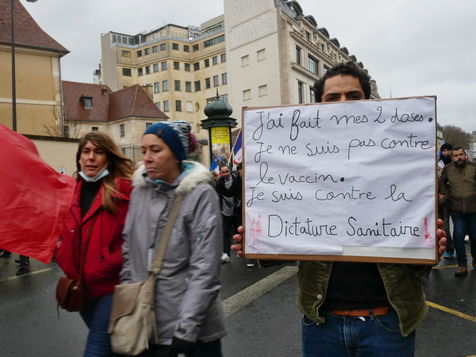 BON
MARCHÉ
J'ai fait mes 2 doses.
Je ne suis pas contre
le vaccin.
Je suis contre la
Dictature Sanitaire